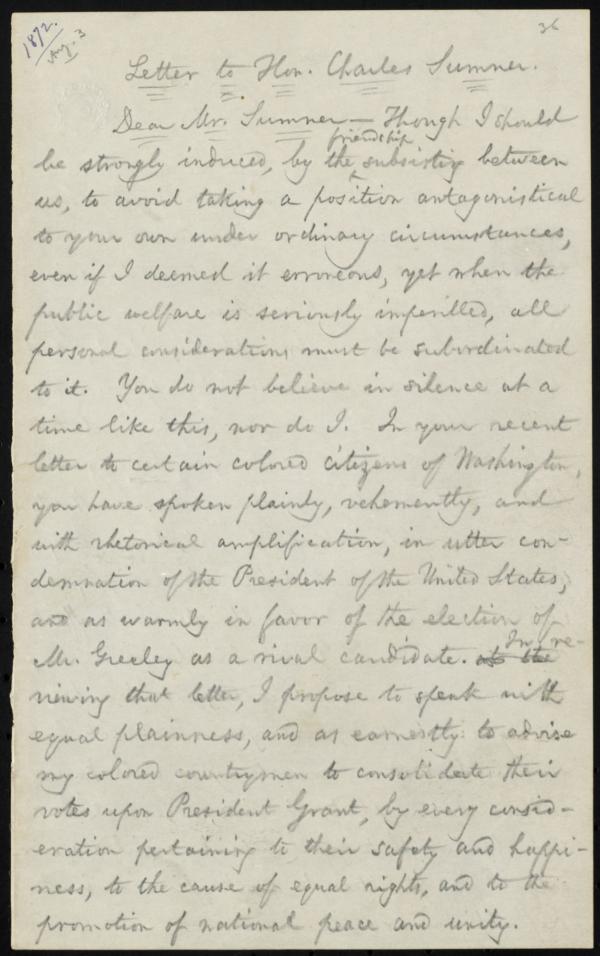 1872.
Aug. 3
36
Letter to Hon. Charles Sumner.
Dear Mr. Sumner — Though I should
friendship
be strongly induced, by the subsisting between
us, to avoid taking a position antagonistical
to your own under ordinary circumstances,
even if I deemed it erroneous, yet when the
public welfare is seriously imperilled, all
personal considerations must be subordinated
to it. You do not believe in silence at a
time like this, nor do I. In your recent
letter to certain colored citizens of Washington,
you have spoken plainly, vehemently, and
with rhetorical amplification, in utter con-
demnation of the President of the United States,
and as warmly in favor of the election of
Mr. Greeley as a rival candidate. In re-
viewing that letter, I propose to speak with
equal plainness, and as earnestly to advise
my colored countrymen to consolidate their
votes upon President Grant, by every consid-
eration pertaining to their safety and happi-
ness, to the cause of equal rights, and to the
promotion of national peace and unity.